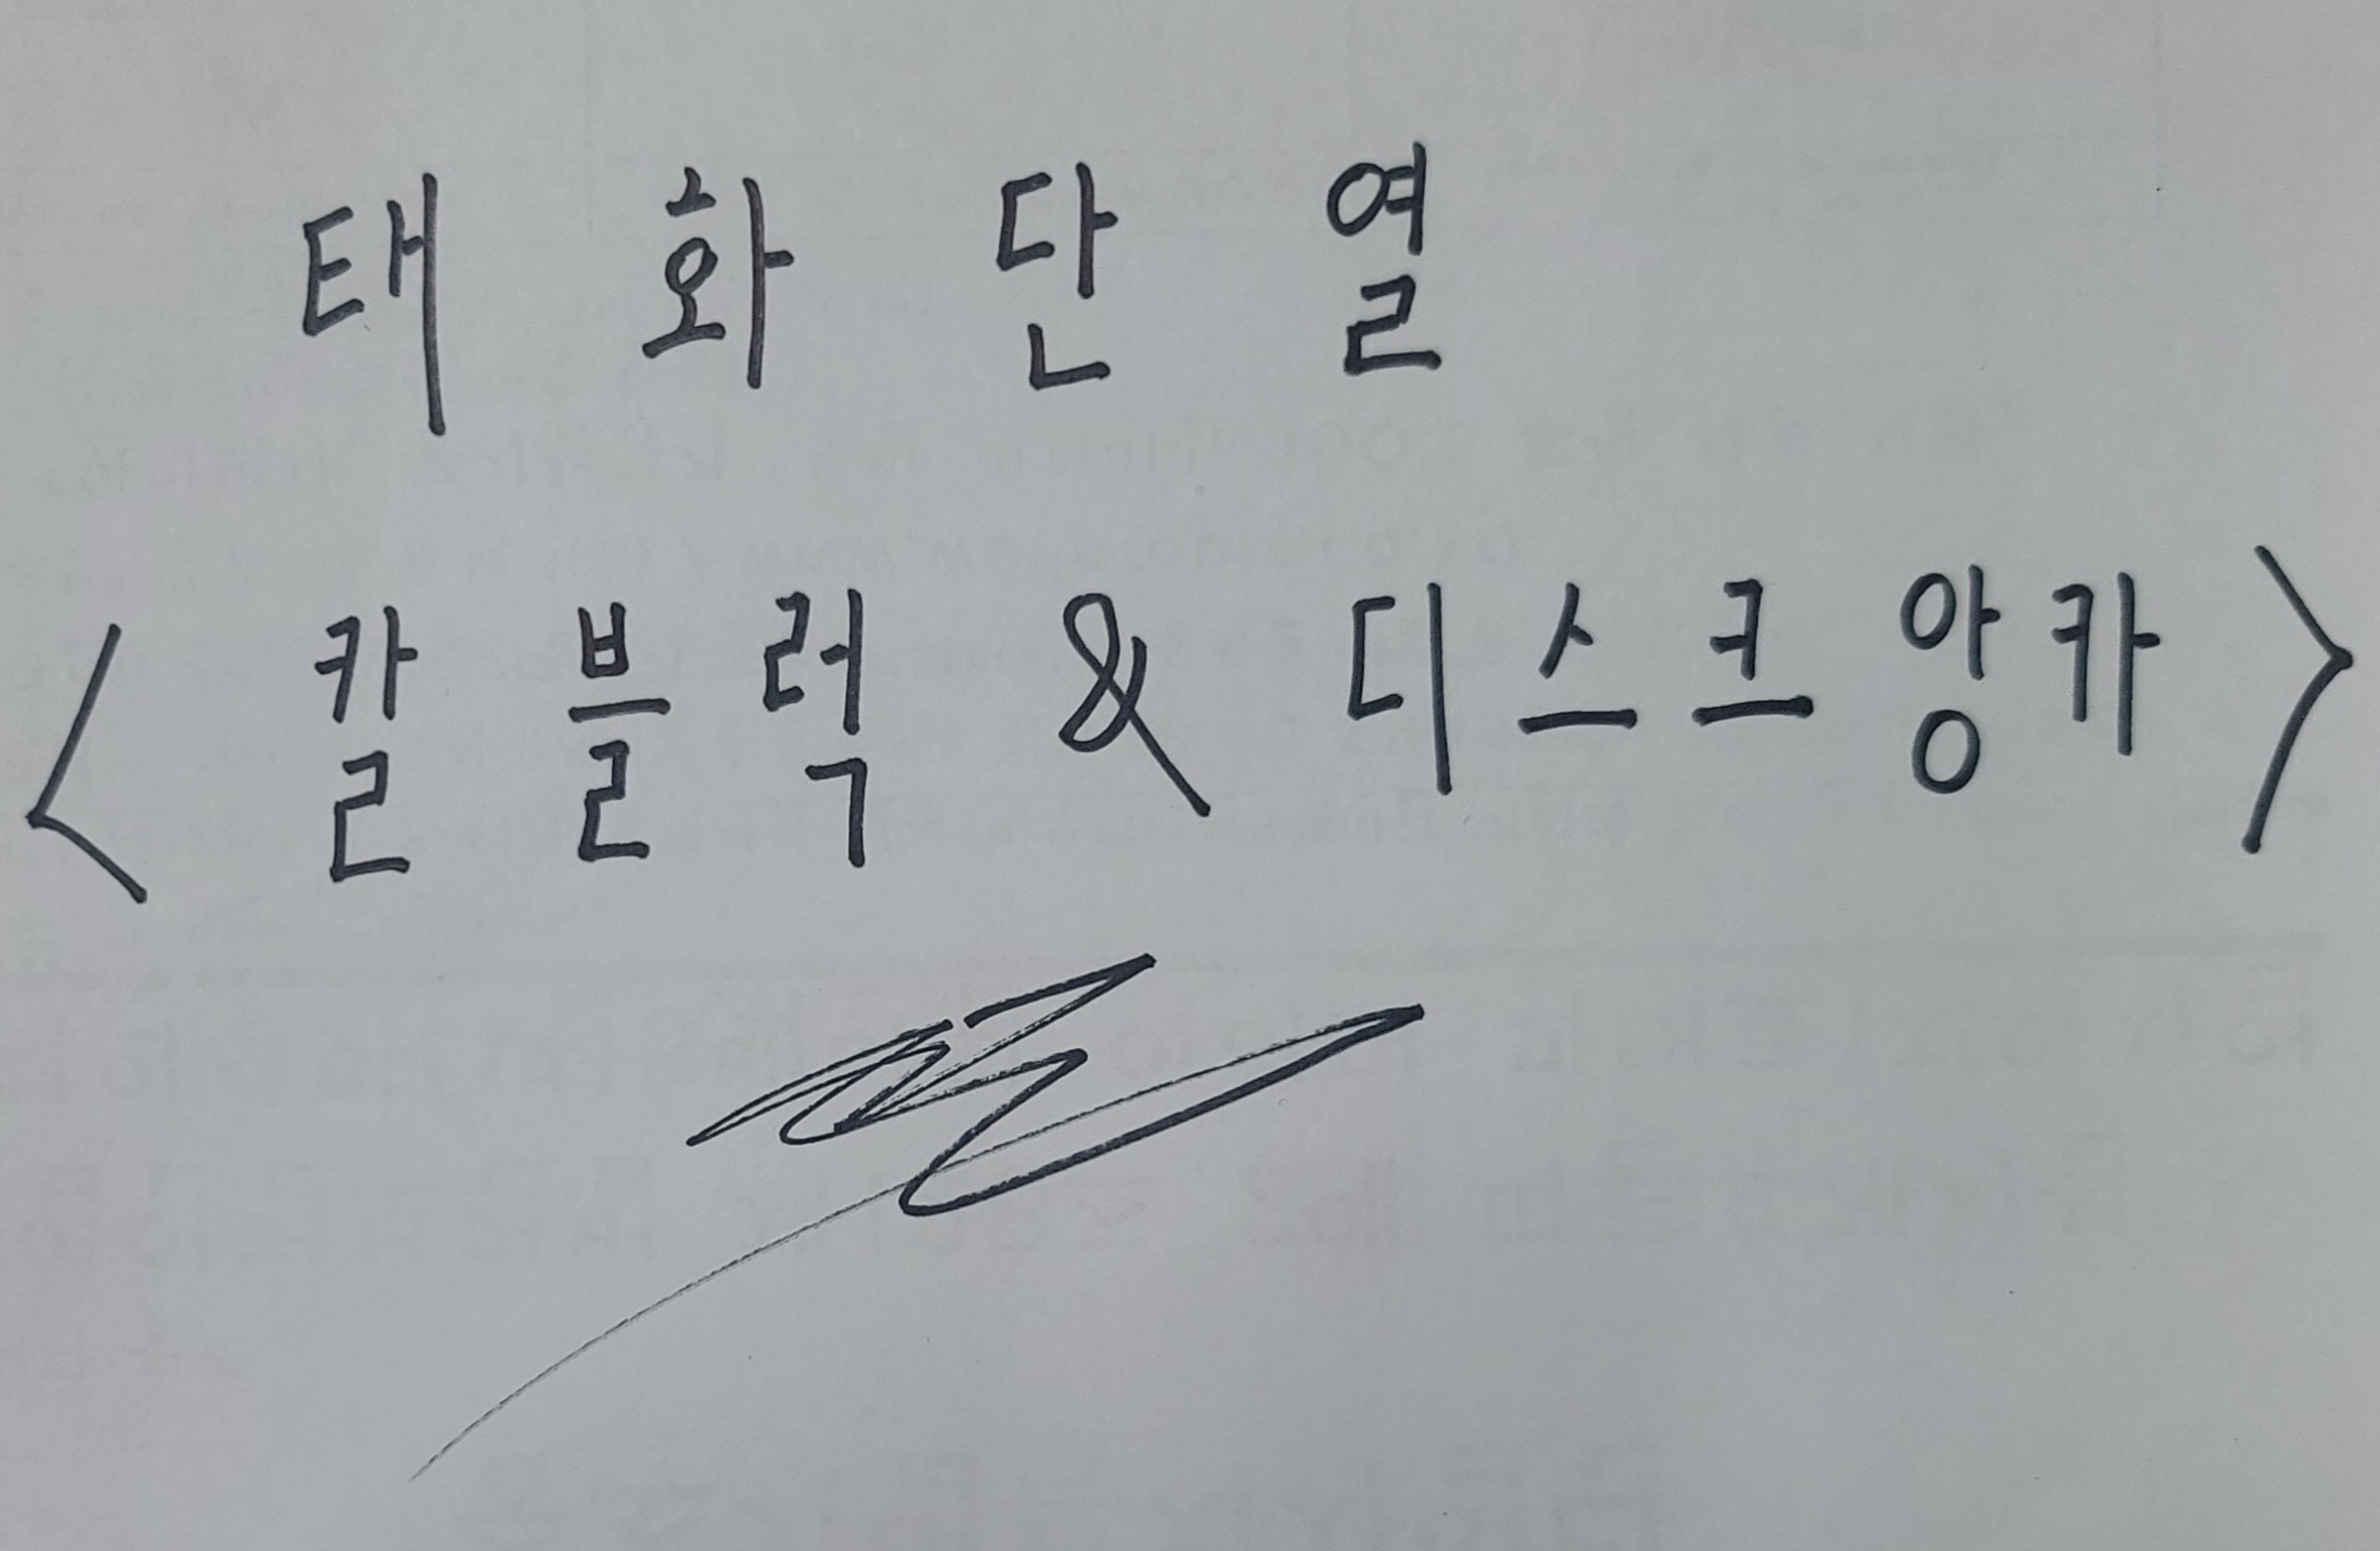 태화단열
<칼블럭 & 디스크앙카>